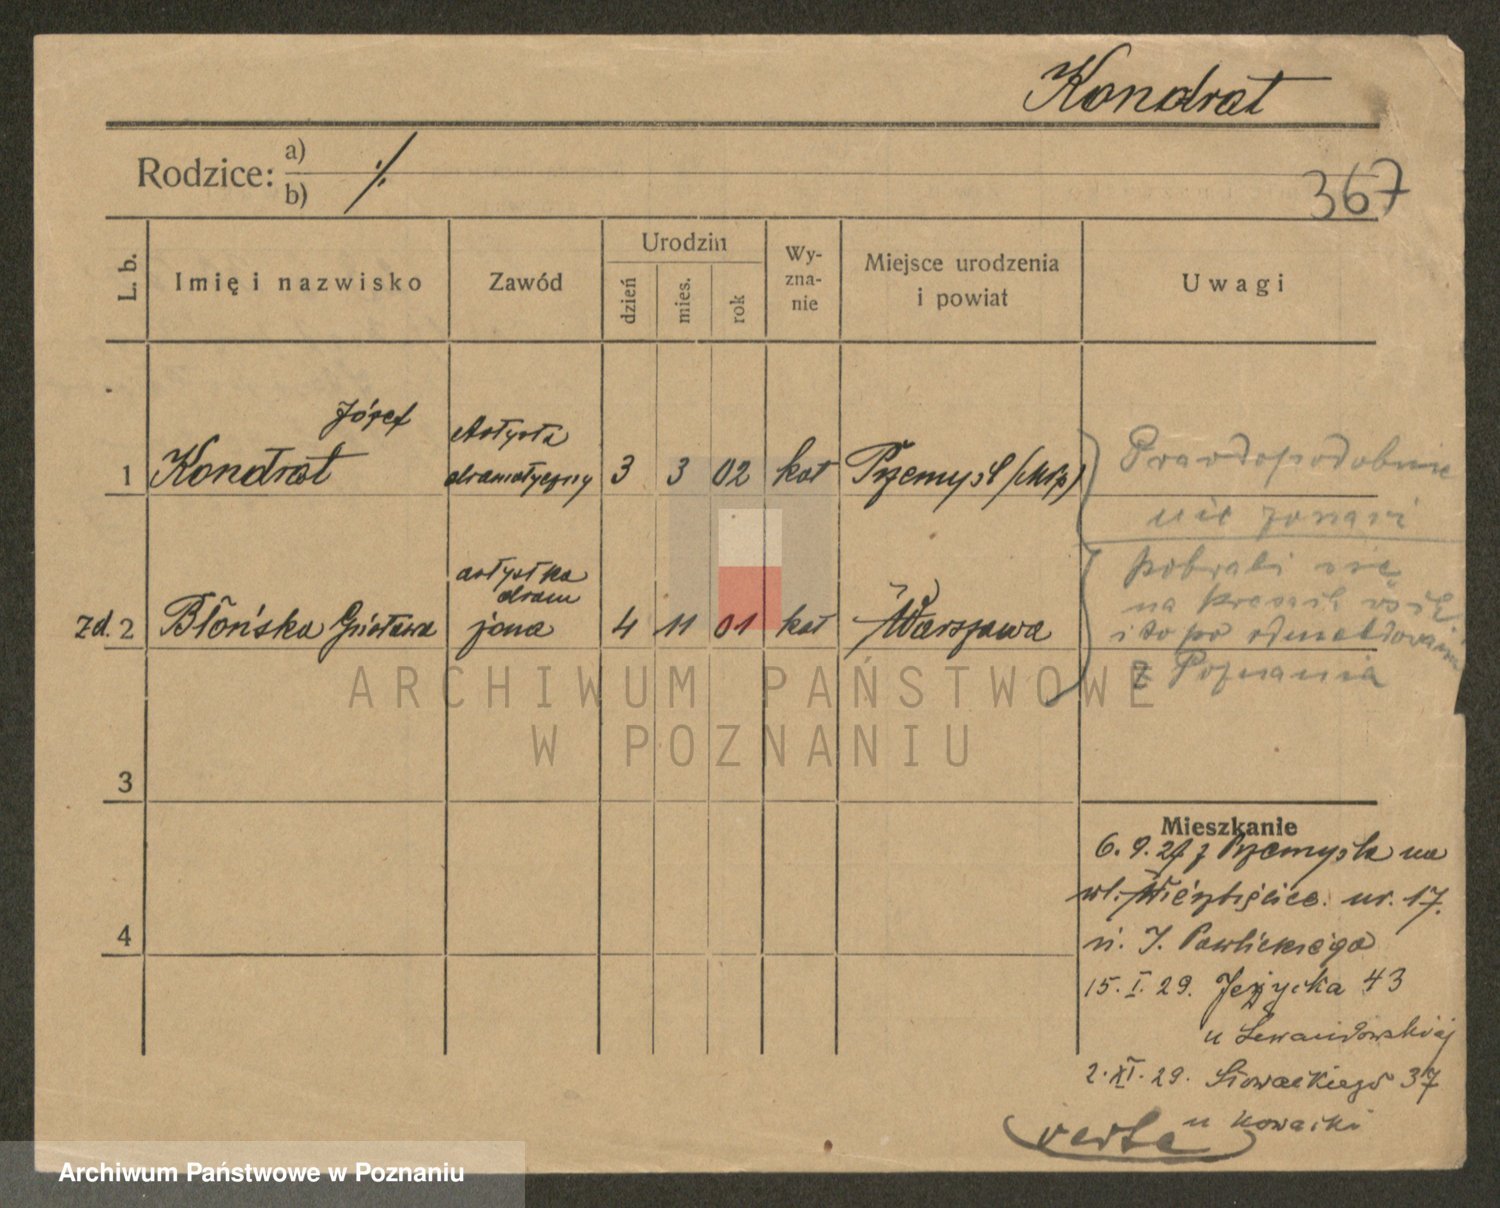 Kondrat
Rodzice: a) ·/.
b)
367
L. b.
Imię i nazwisko
Zawód
Urodzin
dzień
mies.
rok
Wy-
zna-
nie
Miejsce urodzenia
i powiat
Uwagi
Józef
1 Kondrat
Artysta
dramatyczny
3 3 02 kat Przemyśl (Młp)
Prawdopodobnie
nie żonaci
zd. 2 Błońska Gustawa
artystka
dram
żona
4 11 01 kat Warszawa
pobrali się
na
i to po odmeldowaniu
z Poznania
3
4
Mieszkanie
6. 9. 27 z Przemyśla na
ul. Wierzbięcice. nr. 17.
u. J. Pawlickiego
15. I. 29. Jeżycka 43
u Lewandowskiej
2. XI. 29. Słowackiego 37
u
verte
ARCHIWUM PAŃSTWOWE
W POZNANIU
Archiwum Państwowe w Poznaniu